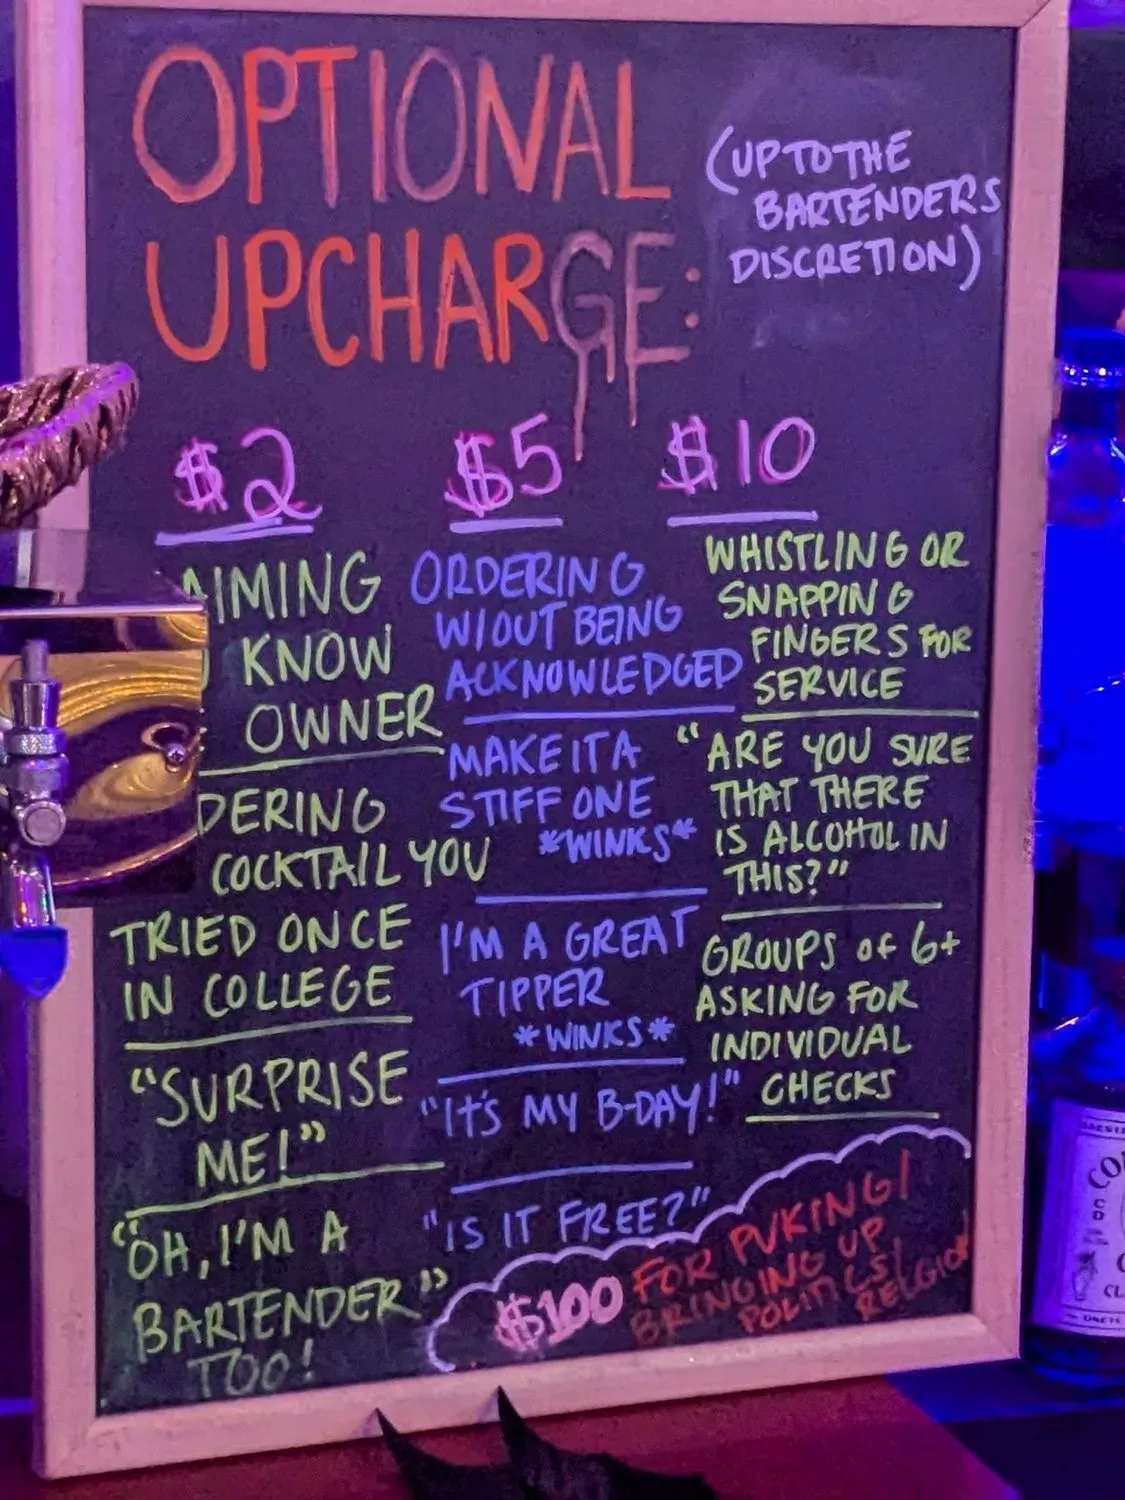 OPTIONAL
UPCHARGE:
(UP TO THE
BARTENDERS
DISCRETION)
$2
AIMING
KNOW
OWNER
DERING
COCKTAIL YOU
TRIED ONCE
IN COLLEGE
"SURPRISE
ME!"
"OH, I'M A
BARTENDER"
TOO!
$5
ORDERING
W/OUT BEING
ACKNOWLEDGED
MAKE IT A
STIFF ONE
*WINKS*
I'M A GREAT
TIPPER
*WINKS*
"IT'S MY B-DAY!"
"IS IT FREE?"
$10
WHISTLING OR
SNAPPING
FINGERS FOR
SERVICE
"ARE YOU SURE
THAT THERE
IS ALCOHOL IN
THIS?"
GROUPS of 6+
ASKING FOR
INDIVIDUAL
CHECKS
$100 FOR PUKING/
BRINGING UP
POLITICS/
RELIGION